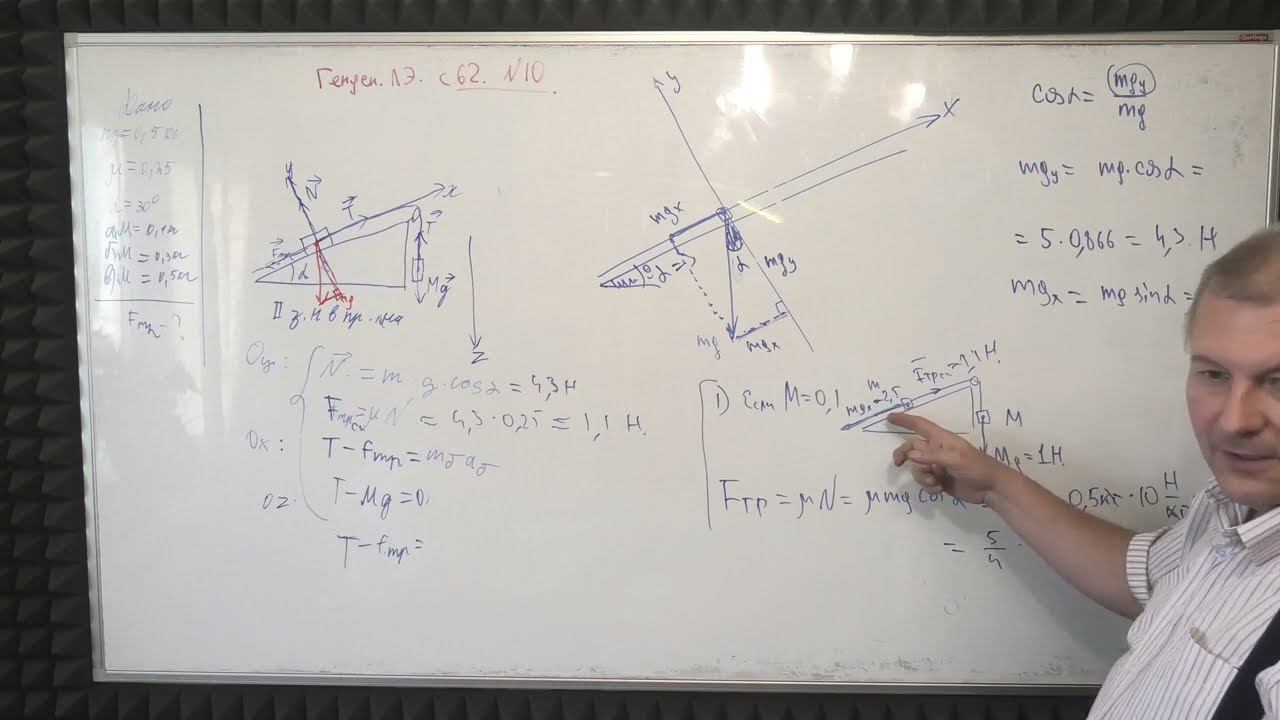 Генден. Л.Э. с 62. №10
Дано
m = 0,5 кг
μ = 0,25
α = 30°
а) M = 0,1 кг
б) M = 0,3 кг
в) M = 0,5 кг
Fтр - ?
y
N
T
x
Fтр
α
mg
T
Mg
Z
II з. Н в пр. ц-на
Oy: N = m g·cosα = 4,3 Н
Fтр ск = μN = 4,3·0,25 = 1,1 Н.
Ox: T - Fтр = mб aб
oz: T - Mg = 0
T - Fтр =
y
X
mgx
α
mgy
mg
mgx
cosα = mgy / mg
mgy = mg·cosα =
= 5·0,866 = 4,3 Н
mgx = mg sinα =
1) Если M = 0,1
mgx = 2,5
m
Fтр ск = 1,1 Н.
M
Mg = 1 Н.
Fтр = μN = μmg cosα =
0,5 кг·10 Н/кг
= 5/4 ·